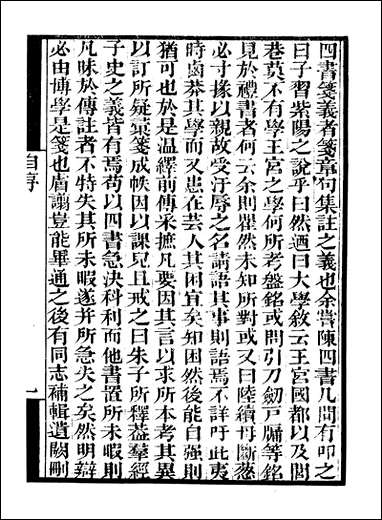 四書箋義者箋章句集註之義也余嘗陳四書几間有叩之
曰子習紫陽之說乎曰然迺曰大學敘云王宮國都以及閭
巷莫不有學王宮之學何所考盤銘或問引刀劒戸牖等銘
見於禮書者何云余則瞿然未知所對或又曰陸續母斷葱
必寸掾以親故受汙辱之名請語其事則語焉不詳吁此夷
時鹵莽其學而又患在芸人其困宜矣知困然後能自強則
猶可也於是温繹前傳采摭凡要因其言以求所本考其異
以訂所疑裒箋成帙因以課兒且戒之曰朱子所釋葢羣經
子史之義皆有焉苟以四書急決科利而他書置所未暇則
凡昧於傳註者不特失其所未暇遂并所急失之矣然明辯
必由博學是箋也庸謭豈能畢通之後有同志補輯遺闕刪
自序
一